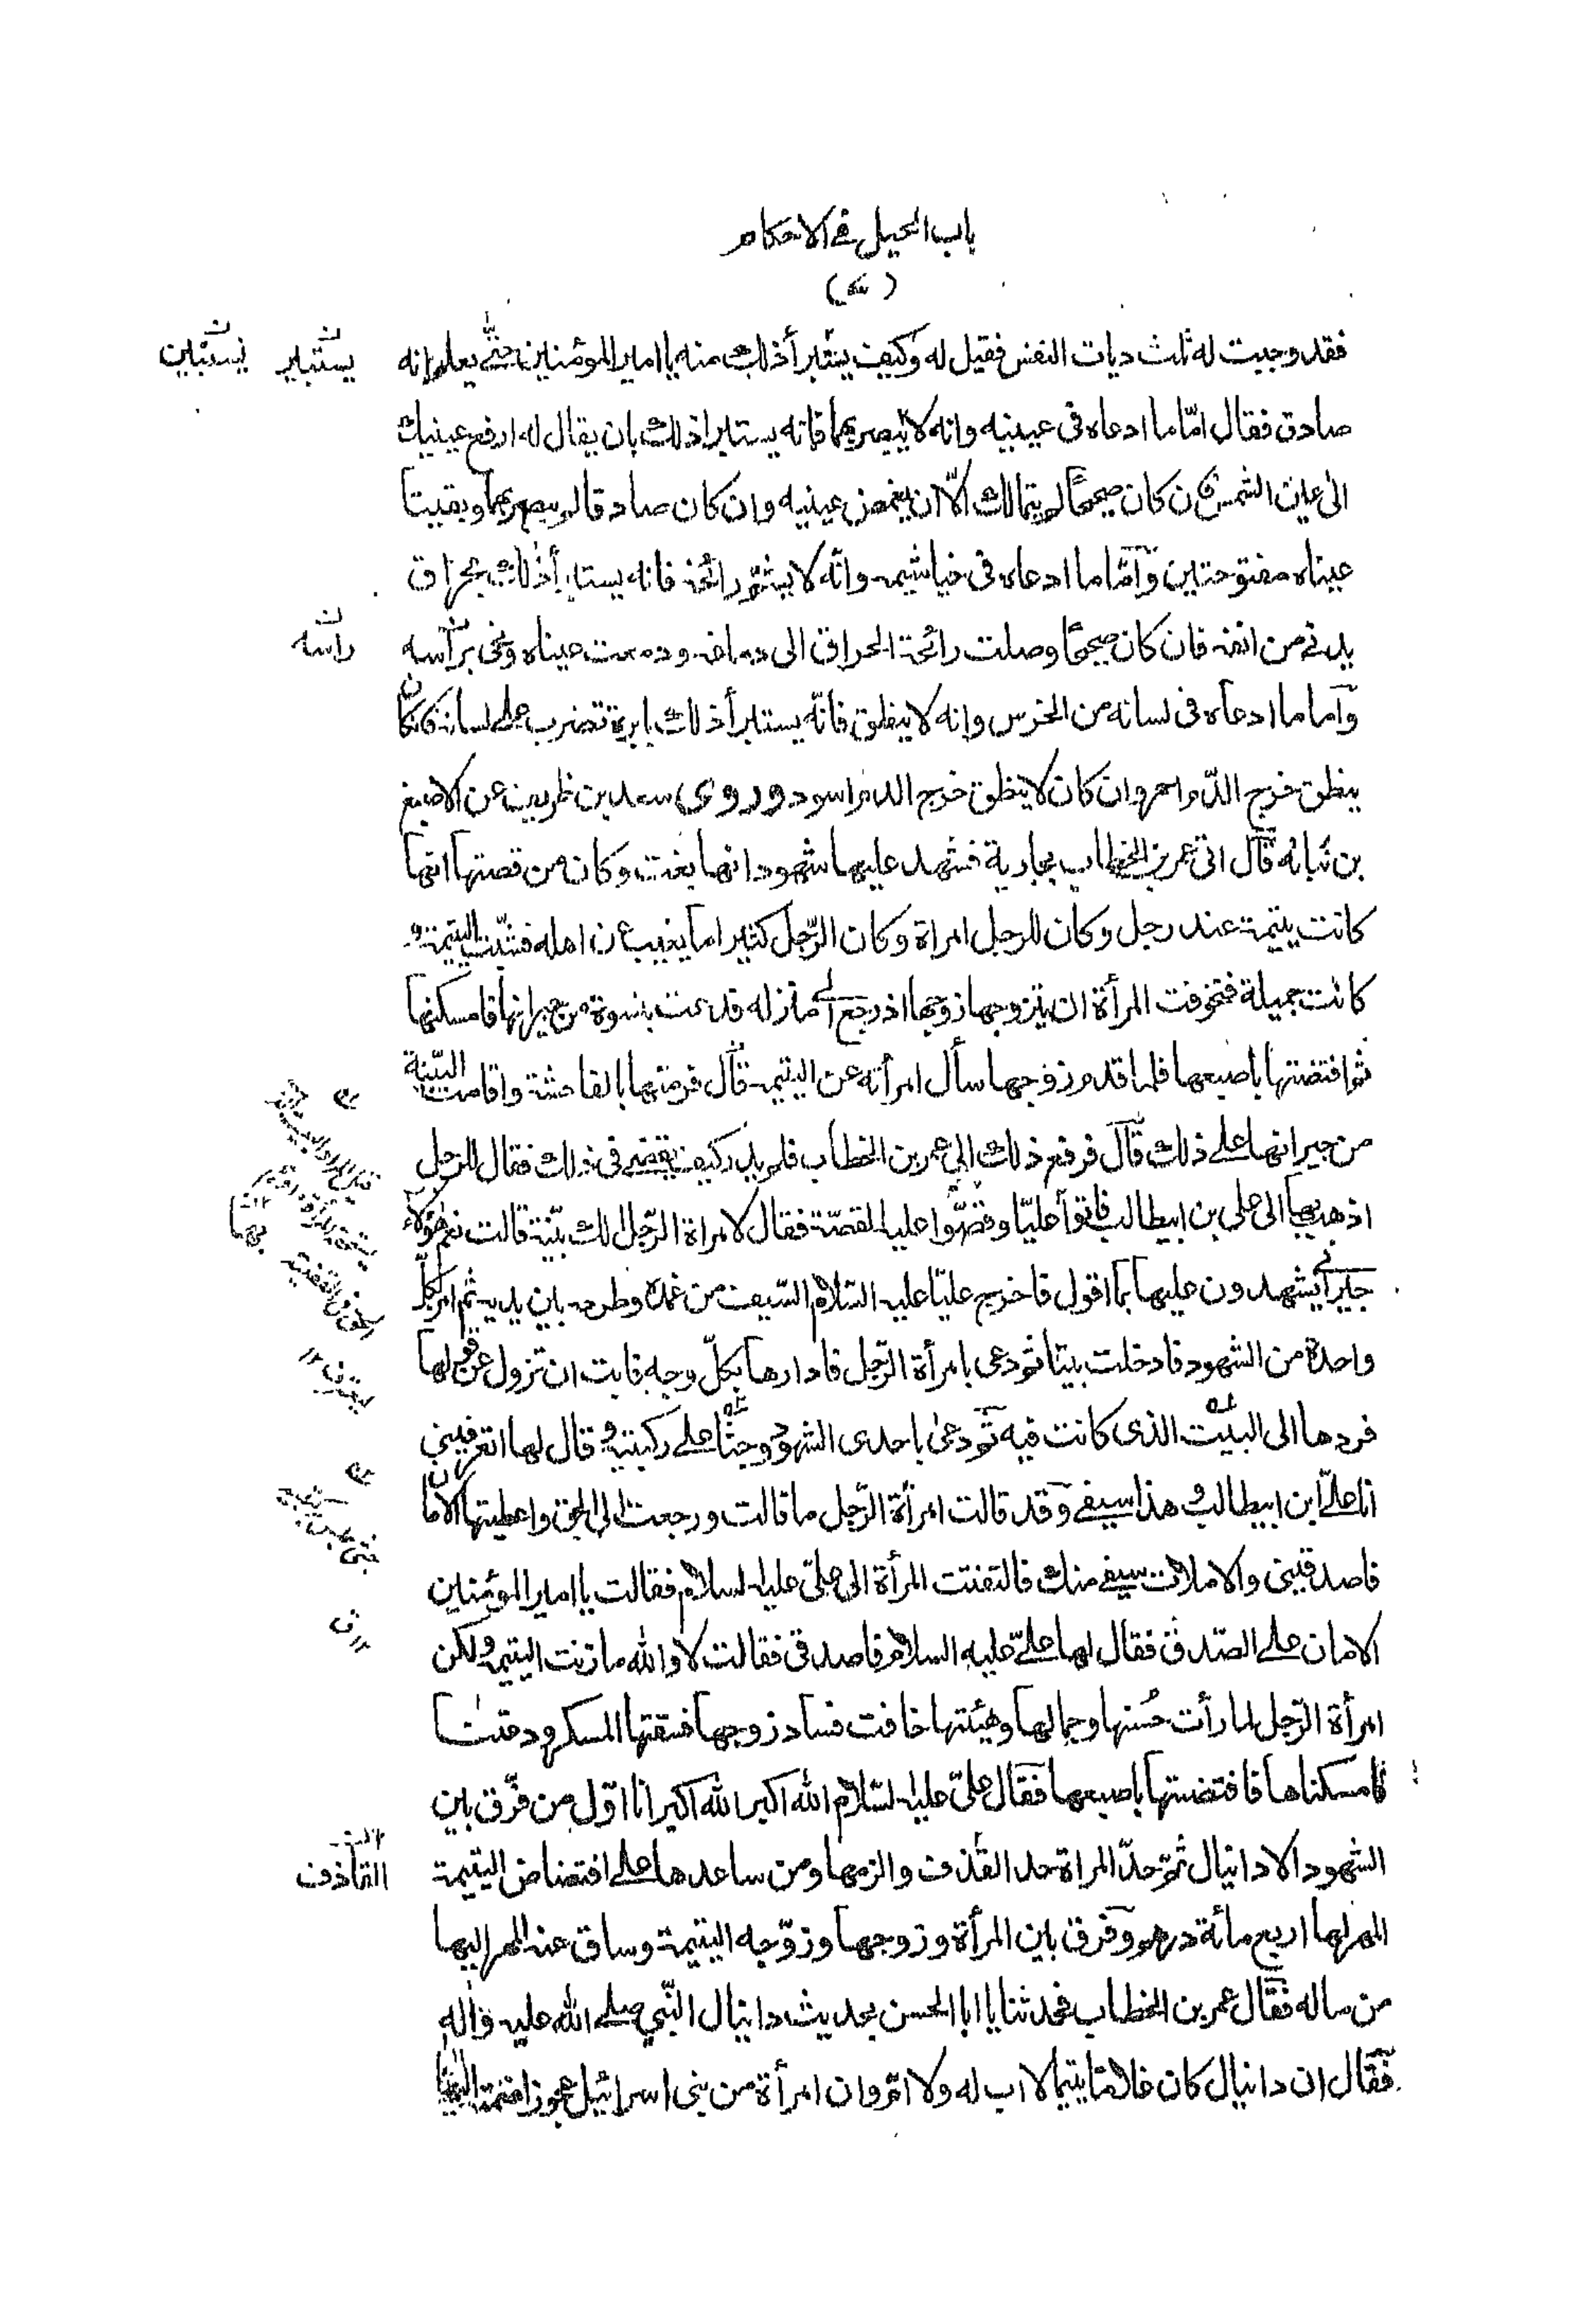 باب الحيل في الاحكام
فقد وجبت له ثلث ديات النفس فقيل له وكيف يستبرأ ذلك منه يا امير المؤمنين حتّى يعلم انه
يستبرء
يستبين
صادق فقال امّا ما ادعاه فى عينيه وانه لا يبصر بهما فانه يستبرأ ذلك بان يقال له ارفع عينيك
الى عين الشمس فان كان صحيحًا لم يتمالك الّا ان يغمض عينيه وان كان صادقا لم يبصر بهما وبقيتا
عيناه مفتوحتين وامّا ما ادعاه فى خياشيمه وانّه لا يشمّ رائحة فانه يستبرأ ذلك بحراق
يدنى من انفه فان كان صحيحًا وصلت رائحة الحراق الى دماغه ودمعت عيناه ونحى برأسه
راسه
وامّا ما ادعاه فى لسانه من الخرس وانه لا ينطق فانّه يستبرأ ذلك بابرة تضرب على لسانه فان كان
ينطق خرج الدّم احمر وان كان لا ينطق خرج الدم اسود وروى سعد بن ظريف عن الاصبغ
بن نباته قال اتى عمر بن الخطاب بجارية فشهد عليها شهود انها بغت وكان من قصتها انها
كانت يتيمة عند رجل وكان للرجل امراة وكان الرّجل كثيرا ما يغيب عن اهله فشبّت اليتيمة و
كانت جميلة فتخوفت المرأة ان يتزوجها زوجها اذ رجع الى منزله فدعت بنسوة من جيرانها فامسكنها
ثم افتضتها باصبعها فلما قدم زوجها سأل امرأته عن اليتيمة قال فرمتها بالفاحشة واقامت البيّنة
من جيرانها على ذلك قال فرفع ذلك الى عمر بن الخطاب فلم يدر كيف يقضى فى ذلك فقال للرجل
اذهب بها الى على بن ابيطالب فاتوا عليًّا وقصّوا عليه القصّة فقال لامراة الرّجل الك بيّنة قالت نعم هؤلاء
بها
جيرانى يشهدون عليها بما اقول فاخرج علىّ عليه السّلام السّيف من غمده وطرحه بين يديه ثم امر بكلّ
واحدة من الشهود فادخلت بيتا ثم دعى بامرأة الرّجل فادارها بكلّ وجه فابت ان تزول عن قولها
فردها الى البيت الذى كانت فيه ثم دعى باحدى الشهود وجثا على ركبتيه و قال لها اتعرفيني
انا علىّ ابن ابيطالب و هذا سيفى وقد قالت امرأة الرّجل ما قالت ورجعت الى الحق واعطيتها الامان
فاصدقينى والا ملات سيفى منك فالتفتت المرأة الى علىّ عليه السلام فقالت يا امير المؤمنين
الامان على الصّدق فقال لها علىّ عليه السلام فاصدقى فقالت لا والله ما زنت اليتيمة ولكن
امرأة الرّجل لما رأت حُسنها وجمالها وهيئتها خافت فساد زوجها فسقتها المسكر ودعتنا
فامسكناها فافتضتها باصبعها فقال علىّ عليه السّلام الله اكبر الله اكبر انا اوّل من فرّق بين
الشهود الا دانيال ثم حدّ المراة حد القذف والزمها ومن ساعدها على افتضاض اليتيمة
القاذف
المهر لها اربع مائة درهم وفرق بين المرأة وزوجها وزوّجه اليتيمة وساق عنه المهر اليها
من ماله فقال عمر بن الخطاب فحدثنا يا ابا الحسن بحديث دانيال النّبي صلى الله عليه وآله
فقال ان دانيال كان غلامًا يتيما لا اب له ولا امّ وان امرأة من بنى اسرائيل عجوزا ضمته اليها